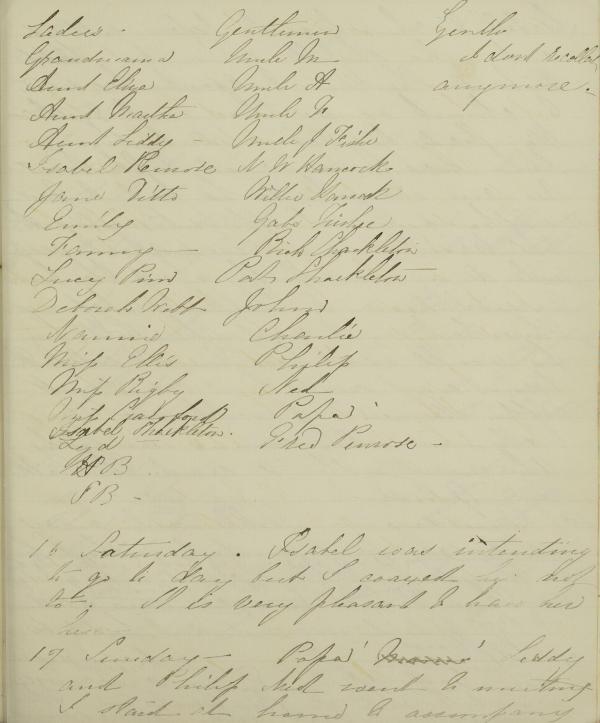 Ladies - Gentlemen Gentle
Grandmama Uncle M I dont recollect
Aunt Eliza Uncle H anymore.
Aunt Martha Uncle F
Aunt Liddy - Uncle J Fishe
Isabel Penrose N W Hancock
Jane Ditto Willie Hancock
Emily Gabe Fishe
Fanny - Rich Shackleton
Lucy Pim Pat Shackleton
Deborah Webb John
Nannie Charlie
Miss Ellis Philip
Miss Rigby Ned
Miss Papa
Isabel Shackleton. Fred Penrose -
Lyd
H B
F B -
16 Saturday. Isabel was intending
to go to day but I coaxed her not
to. It is very pleasant to have her
here
17 Sunday - Papa Liddy
and Philip Ned went to meeting
I staid at home to accompany